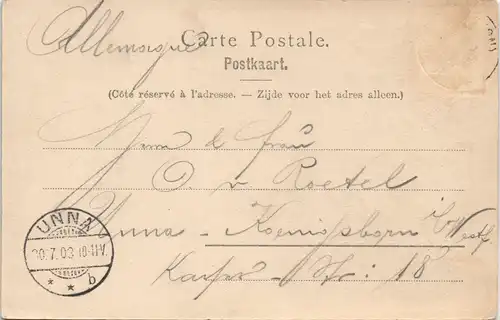 Allemagne
Carte Postale.
Postkaart.
(Côté réservé à l'adresse. — Zijde voor het adres alleen.)
Herrn & Frau
O. v. Roetel
Unna-Koenigsborn i/Westf
Kaiser-Str: 18
UNNA
20.7.02 10-11V.
* * b